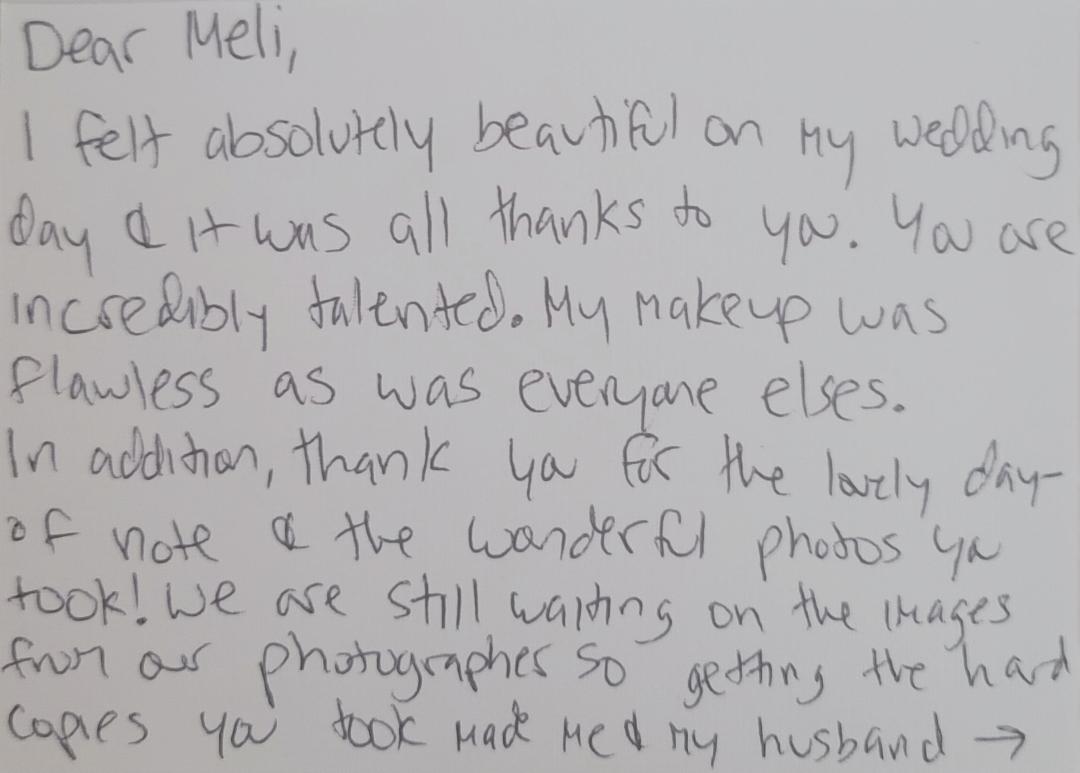 Dear Meli,
I felt absolutely beautiful on my wedding
day & it was all thanks to you. You are
incredibly talented. My makeup was
flawless as was everyone elses.
In addition, thank you for the lovely day-
of note & the wonderful photos you
took! We are still waiting on the images
from our photographer so getting the hard
copies you took made me & my husband →